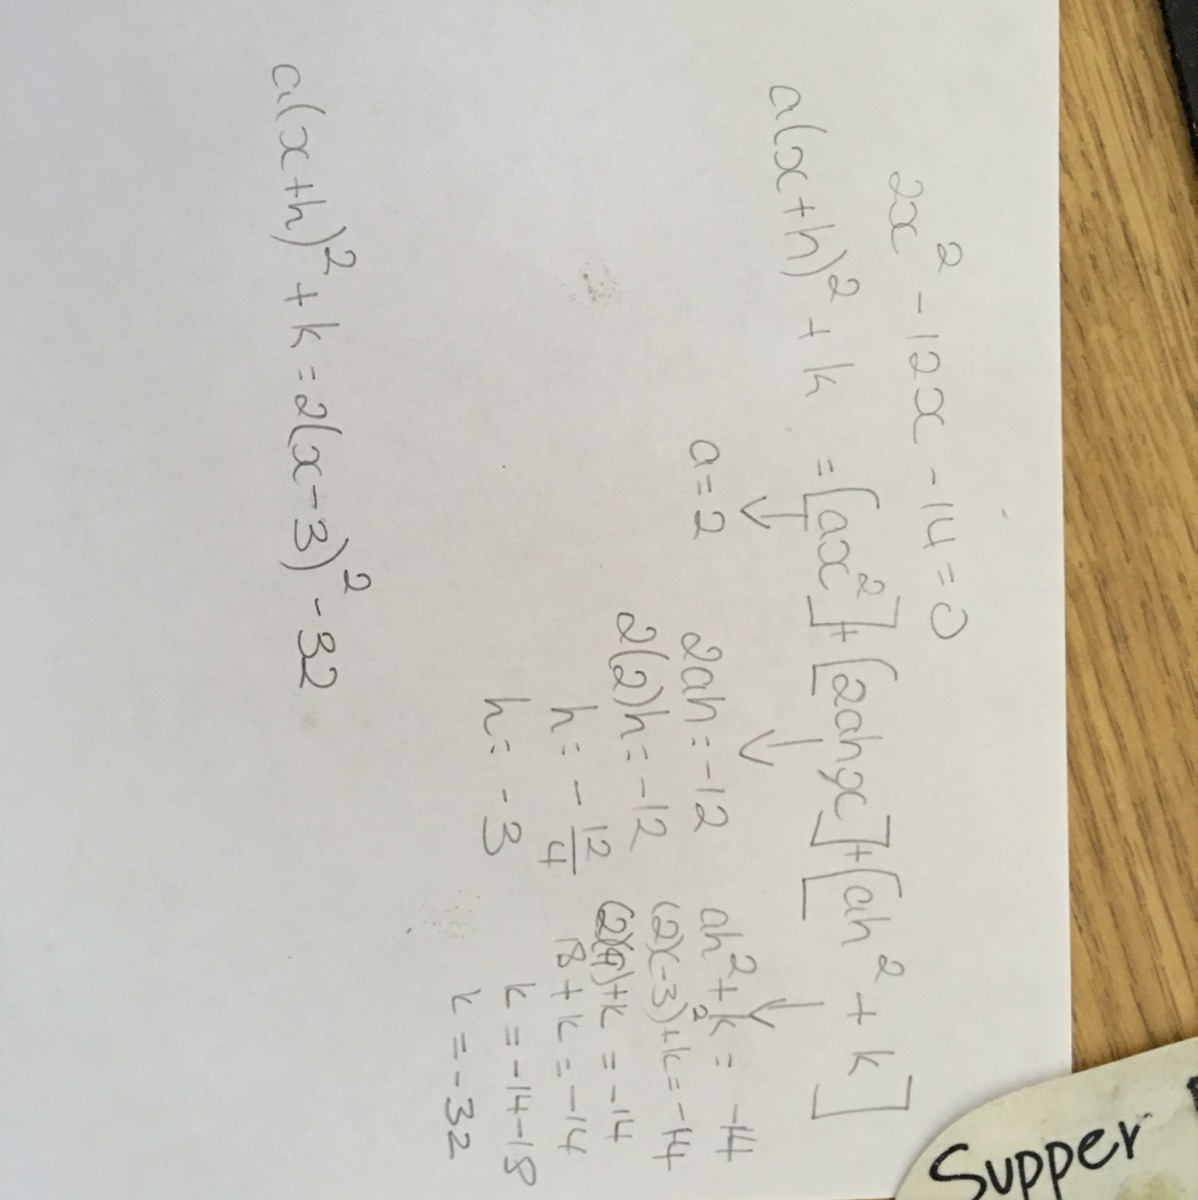 2x² - 12x - 14 = 0
a(x+h)² + k = [ax²] + [2ahx] + [ah² + k]
↓ ↓ ↓
a = 2
2ah = -12
2(2)h = -12
h = - 12/4
h = -3
ah² + k = -14
(2)(-3)² + k = -14
(2)(9) + k = -14
18 + k = -14
k = -14 - 18
k = -32
a(x+h)² + k = 2(x-3)² - 32
Supper